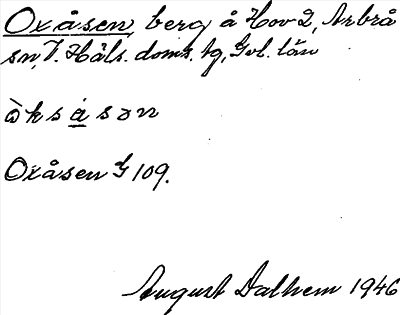 Oxåsen, berg å Hov 2, Arbrå
sn, V. Häls. doms. tg, Gvl. län
ò̀k s å s ə n
Oxåsen G 109.
August Dalhem 1946